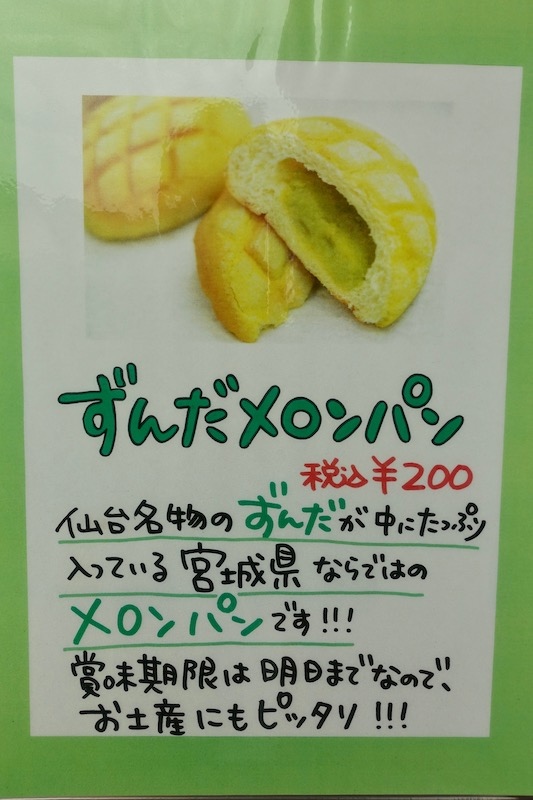 ずんだメロンパン
税込¥200
仙台名物のずんだが中にたっぷり
入っている宮城県ならではの
メロンパンです!!!
賞味期限は明日までなので、
お土産にもピッタリ!!!